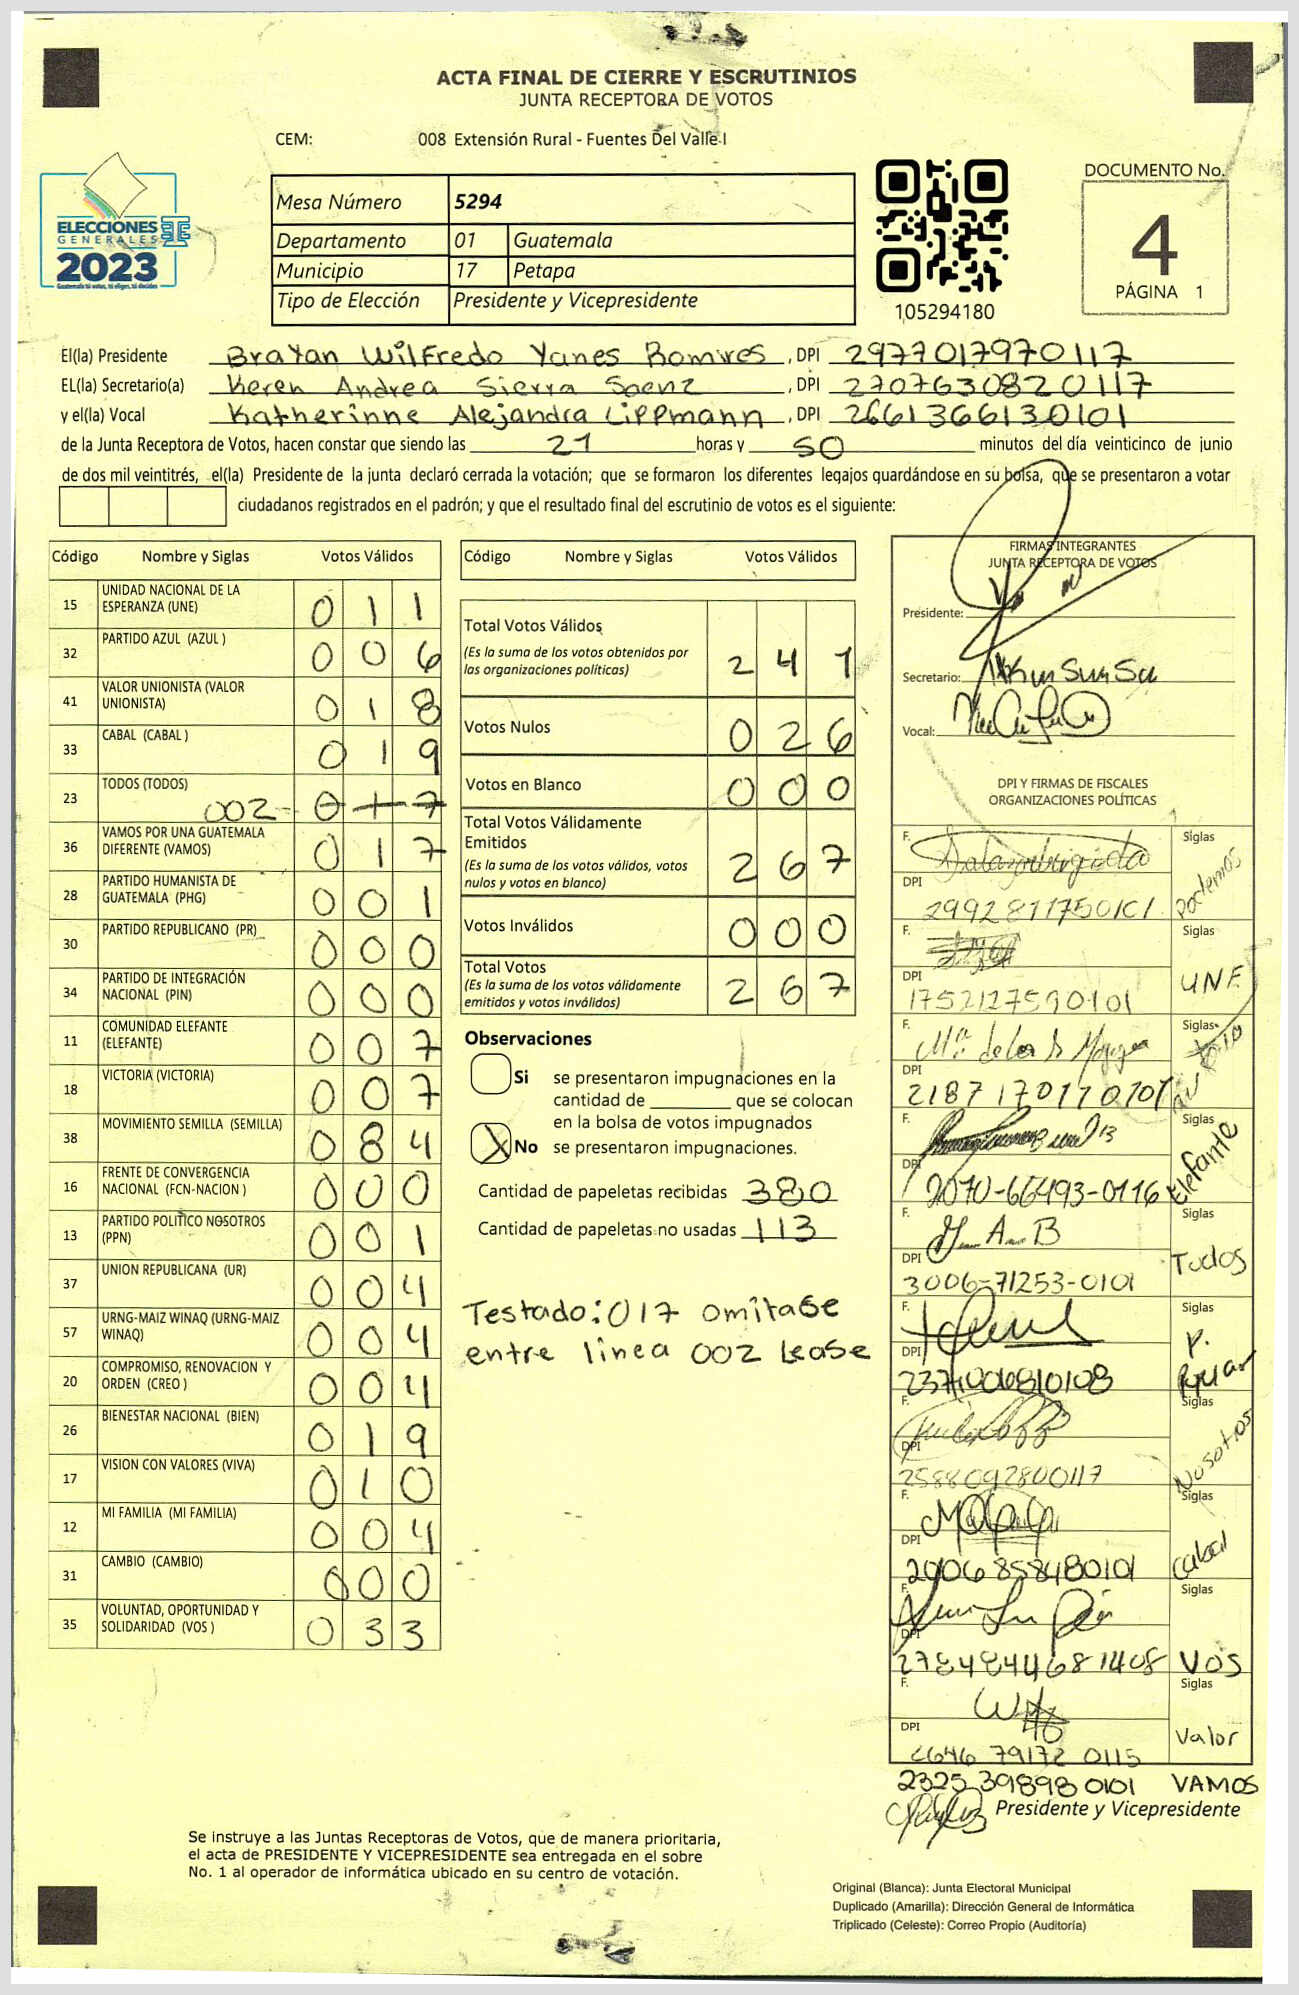 ACTA FINAL DE CIERRE Y ESCRUTINIOS
JUNTA RECEPTORA DE VOTOS
CEM: 008 Extensión Rural - Fuentes Del Valle I
ELECCIONES
GENERALES
2023
Guatemala tú votas, tú eliges, tú decides
Mesa Número 5294
Departamento 01 Guatemala
Municipio 17 Petapa
Tipo de Elección Presidente y Vicepresidente
105294180
DOCUMENTO No.
4
PÁGINA 1
El(la) Presidente Brayan Wilfredo Yanes Ramires, DPI 2977017970117
EL(la) Secretario(a) Keren Andrea Sierra Saenz, DPI 2707630820117
y el(la) Vocal Katherinne Alejandra Lippmann, DPI 2661366130101
de la Junta Receptora de Votos, hacen constar que siendo las 21 horas y 50 minutos del día veinticinco de junio
de dos mil veintitrés, el(la) Presidente de la junta declaró cerrada la votación; que se formaron los diferentes legajos guardándose en su bolsa, que se presentaron a votar
ciudadanos registrados en el padrón; y que el resultado final del escrutinio de votos es el siguiente:
Código Nombre y Siglas Votos Válidos
15 UNIDAD NACIONAL DE LA
ESPERANZA (UNE) 011
32 PARTIDO AZUL (AZUL ) 006
41 VALOR UNIONISTA (VALOR
UNIONISTA) 018
33 CABAL (CABAL ) 019
23 TODOS (TODOS) 002 017
36 VAMOS POR UNA GUATEMALA
DIFERENTE (VAMOS) 017
28 PARTIDO HUMANISTA DE
GUATEMALA (PHG) 001
30 PARTIDO REPUBLICANO (PR) 000
34 PARTIDO DE INTEGRACIÓN
NACIONAL (PIN) 000
11 COMUNIDAD ELEFANTE
(ELEFANTE) 007
18 VICTORIA (VICTORIA) 007
38 MOVIMIENTO SEMILLA (SEMILLA) 084
16 FRENTE DE CONVERGENCIA
NACIONAL (FCN-NACION ) 000
13 PARTIDO POLITICO NOSOTROS
(PPN) 001
37 UNION REPUBLICANA (UR) 004
57 URNG-MAIZ WINAQ (URNG-MAIZ
WINAQ) 004
20 COMPROMISO, RENOVACION Y
ORDEN (CREO ) 004
26 BIENESTAR NACIONAL (BIEN) 019
17 VISION CON VALORES (VIVA) 010
12 MI FAMILIA (MI FAMILIA) 004
31 CAMBIO (CAMBIO) 000
35 VOLUNTAD, OPORTUNIDAD Y
SOLIDARIDAD (VOS ) 033
Código Nombre y Siglas Votos Válidos
Total Votos Válidos
(Es la suma de los votos obtenidos por
las organizaciones políticas) 241
Votos Nulos 026
Votos en Blanco 000
Total Votos Válidamente
Emitidos
(Es la suma de los votos válidos, votos
nulos y votos en blanco) 267
Votos Inválidos 000
Total Votos
(Es la suma de los votos válidamente
emitidos y votos inválidos) 267
Observaciones
Si se presentaron impugnaciones en la
cantidad de ________ que se colocan
en la bolsa de votos impugnados
X No se presentaron impugnaciones.
Cantidad de papeletas recibidas 380
Cantidad de papeletas no usadas 113
Testado: 017 omitase
entre linea 002 Lease
FIRMAS INTEGRANTES
JUNTA RECEPTORA DE VOTOS
Presidente:
Secretario:
Vocal:
DPI Y FIRMAS DE FISCALES
ORGANIZACIONES POLÍTICAS
F. Siglas
Podemos
DPI
F. Siglas
DPI UNE
1752127590101
F. Siglas
DPI
F. Siglas
DPI Elefante
2070-66493-0116
F. Siglas
DPI Todos
3006-71253-0101
F. Siglas
DPI P.
F. Siglas
DPI Nosotros
2588092800117
F. Siglas
DPI Cabal
2006858480101
F. Siglas
DPI
2784844681408 VOS
F. Siglas
DPI Valor
2646 79172 0115
2325 39898 0101 VAMOS
Presidente y Vicepresidente
Se instruye a las Juntas Receptoras de Votos, que de manera prioritaria,
el acta de PRESIDENTE Y VICEPRESIDENTE sea entregada en el sobre
No. 1 al operador de informática ubicado en su centro de votación.
Original (Blanca): Junta Electoral Municipal
Duplicado (Amarilla): Dirección General de Informática
Triplicado (Celeste): Correo Propio (Auditoría)